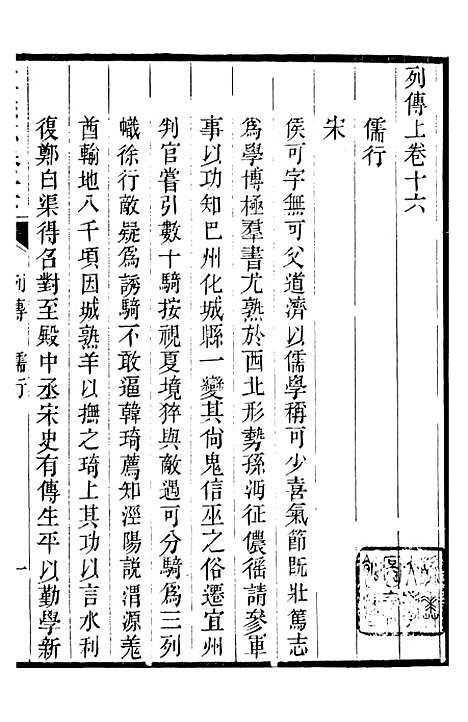 列傳上卷十六
儒行
宋
侯可字無可父道濟以儒學稱可少喜氣節既壯篤志
爲學博極羣書尤熟於西北形勢孫沔征儂徭請參軍
事以功知巴州化城縣一變其尙鬼信巫之俗遷宜州
判官嘗引數十騎按視夏境猝與敵遇可分騎爲三列
幟徐行敵疑爲誘騎不敢逼韓琦薦知涇陽說渭源羌
酋輸地八千頃因城熟羊以撫之琦上其功以言水利
復鄭白渠得名對至殿中丞宋史有傳生平以勤學新
列傳 儒行 一